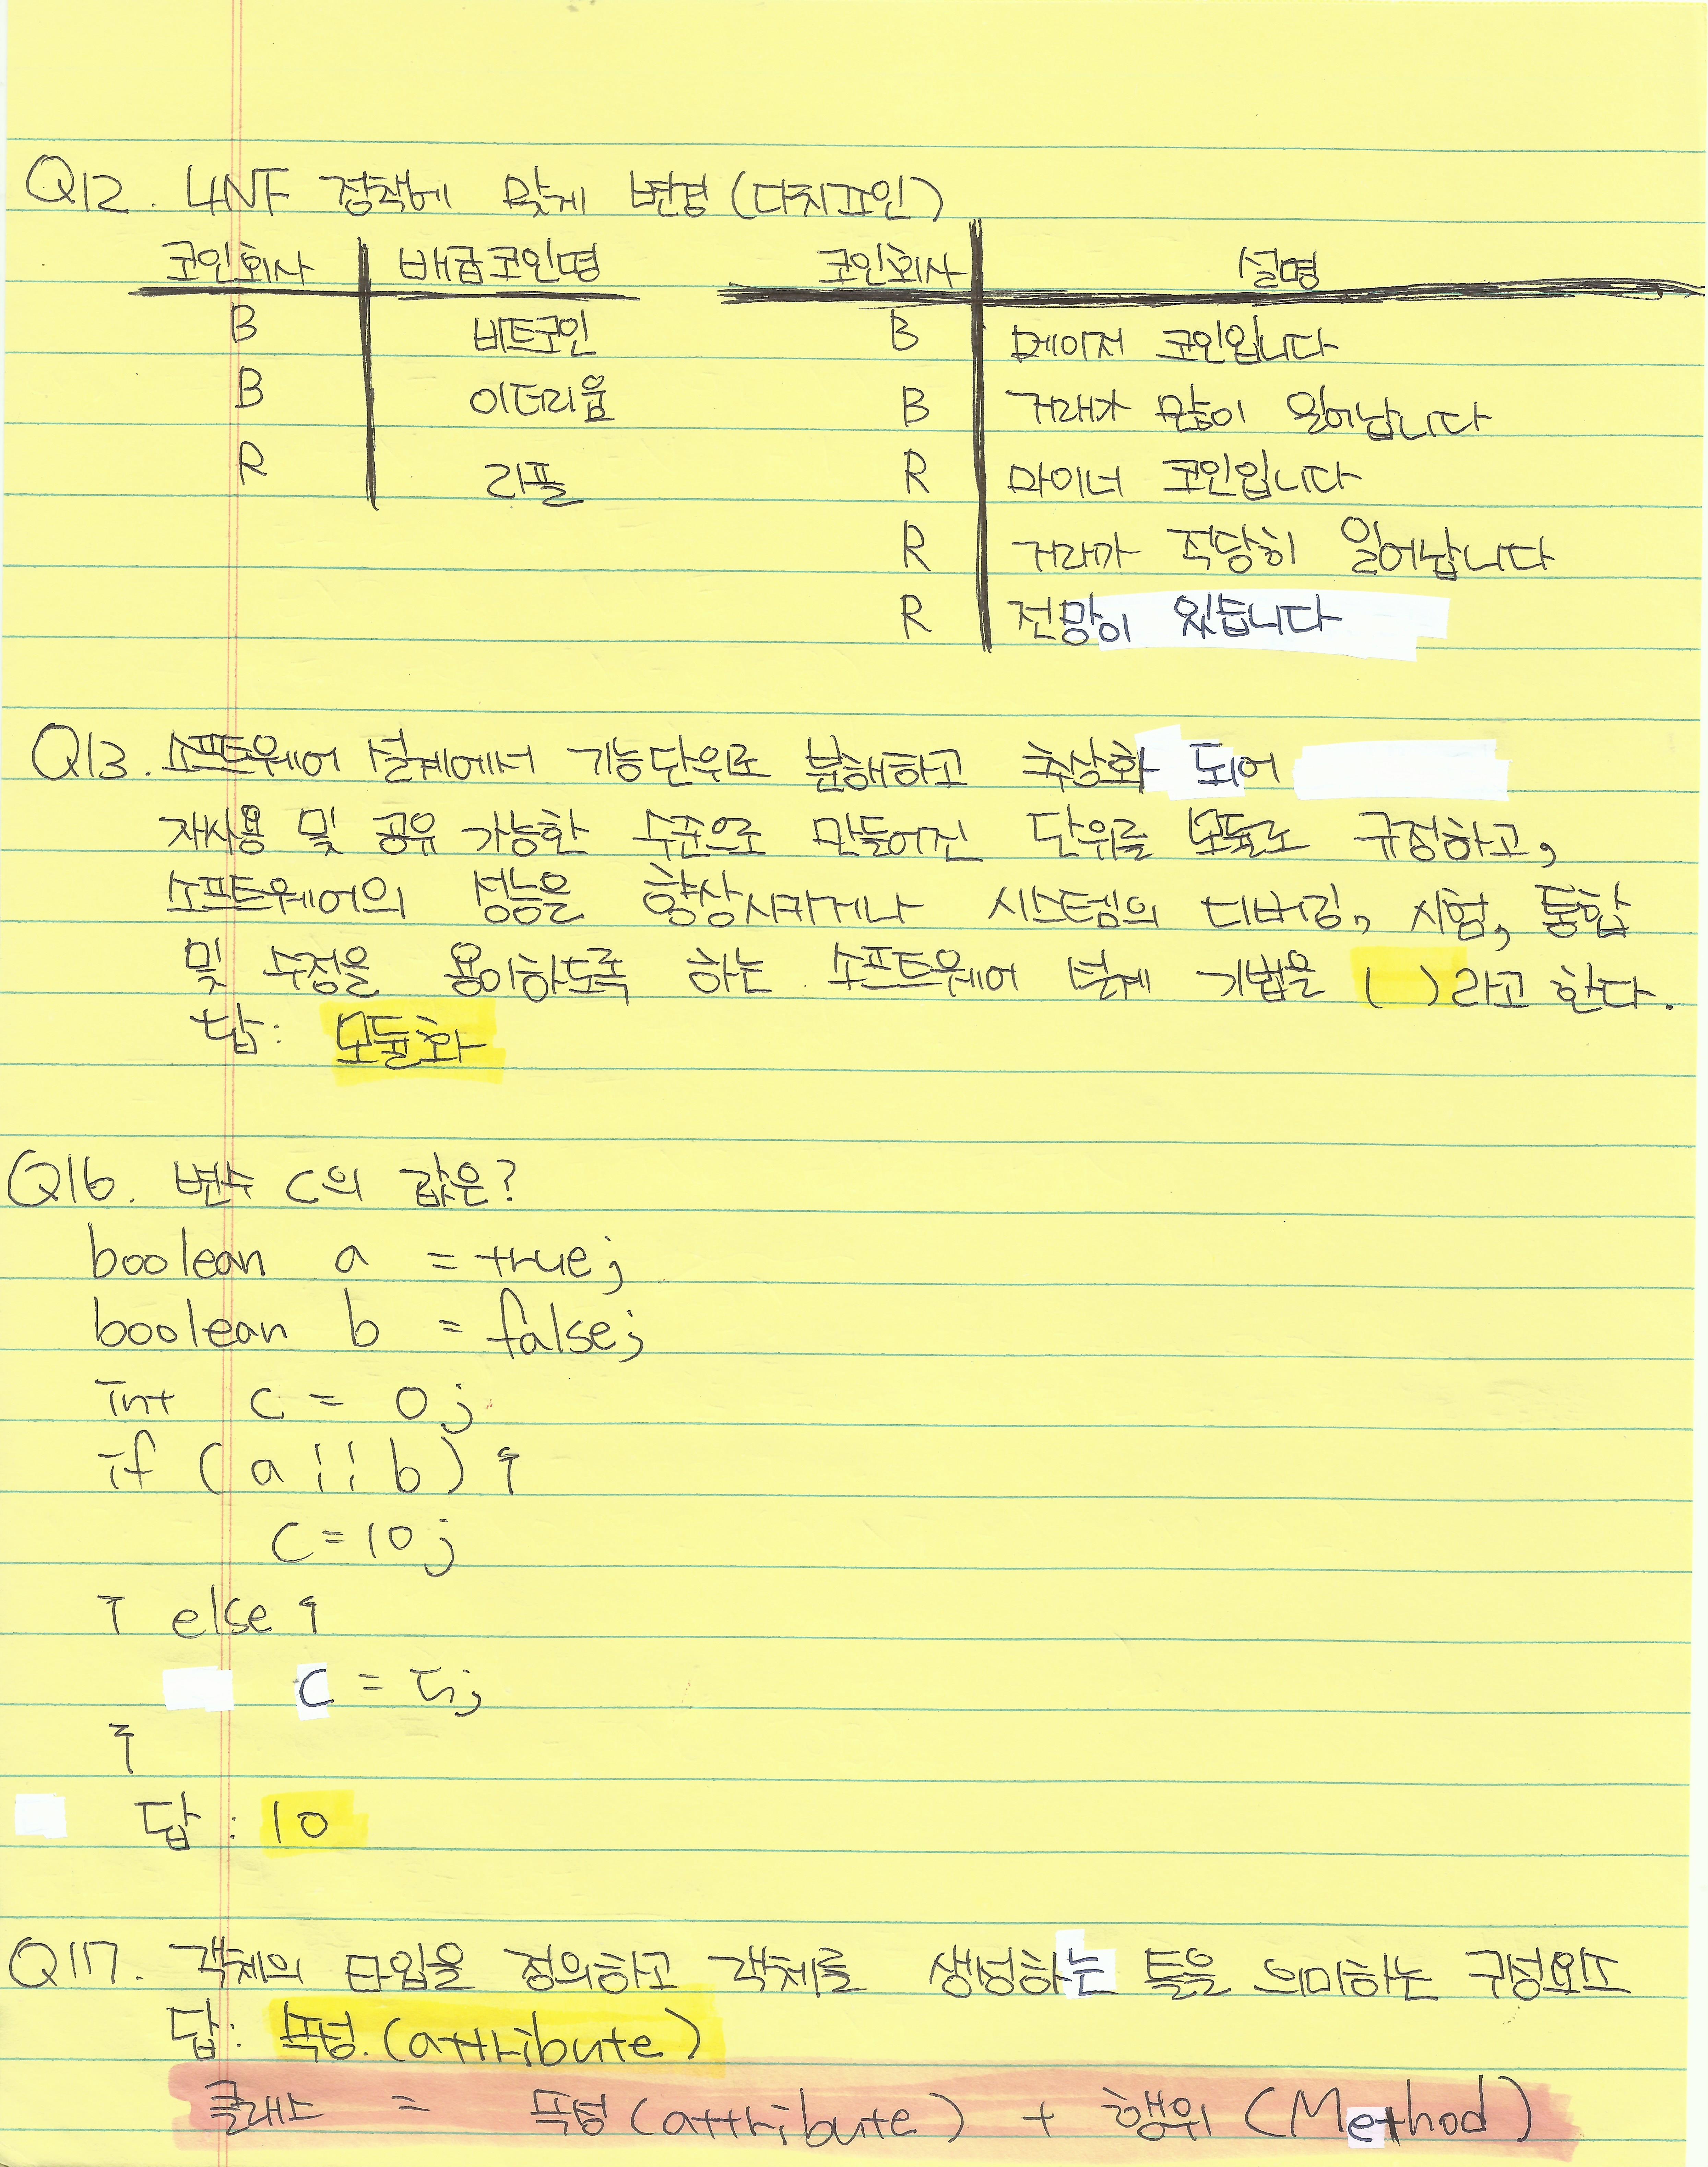 Q12. 4NF 정책에 맞게 변경 (다치프인)
코인회사 배급코인명 코인회사 설명
B 비트코인 B 메이저 코인입니다
B 이더리움 B 거래가 많이 일어납니다
R 리플 R 마이너 코인입니다
R 거래가 적당히 일어납니다
R 전망이 있습니다
Q13. 소프트웨어 설계에서 기능단위로 분해하고 추상화 되어
재사용 및 공유 가능한 수준으로 만들어진 단위를 모듈로 규정하고,
소프트웨어의 성능을 향상시키거나 시스템의 디버깅, 시험, 통합
및 수정을 용이하도록 하는 소프트웨어 설계 기법을 ( )라고 한다.
답: 모듈화
Q16. 변수 C의 값은?
boolean a = true;
boolean b = false;
int c = 0;
if (a || b) {
c = 10;
} else {
c = 5;
}
답 : 10
Q17. 객체의 타입을 정의하고 객체를 생성하는 틀을 의미하는 구성요소
답: 속성.(attribute)
클래스 = 속성(attribute) + 행위 (Method)